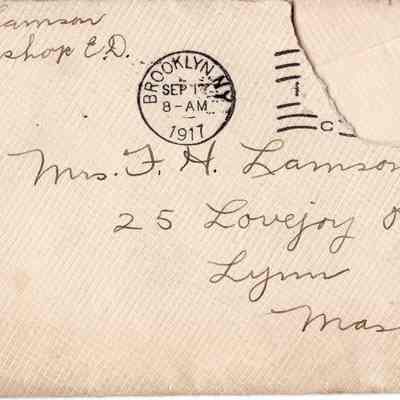 Lamson
shop E.D.
BROOKLYN, N.Y.
SEP 17
8-AM
1917
C
Mrs. F. H. Lamson
25 Lovejoy
Lynn
Mas